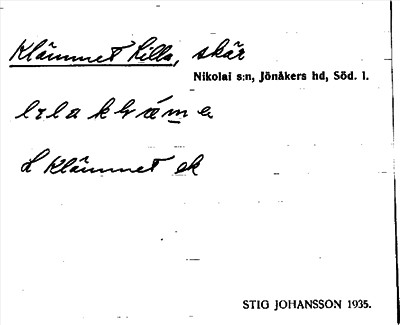 Klämmet Lilla, skär
Nikolai s:n, Jönåkers hd, Söd. l.
L Klämmet ek
STIG JOHANSSON 1935.